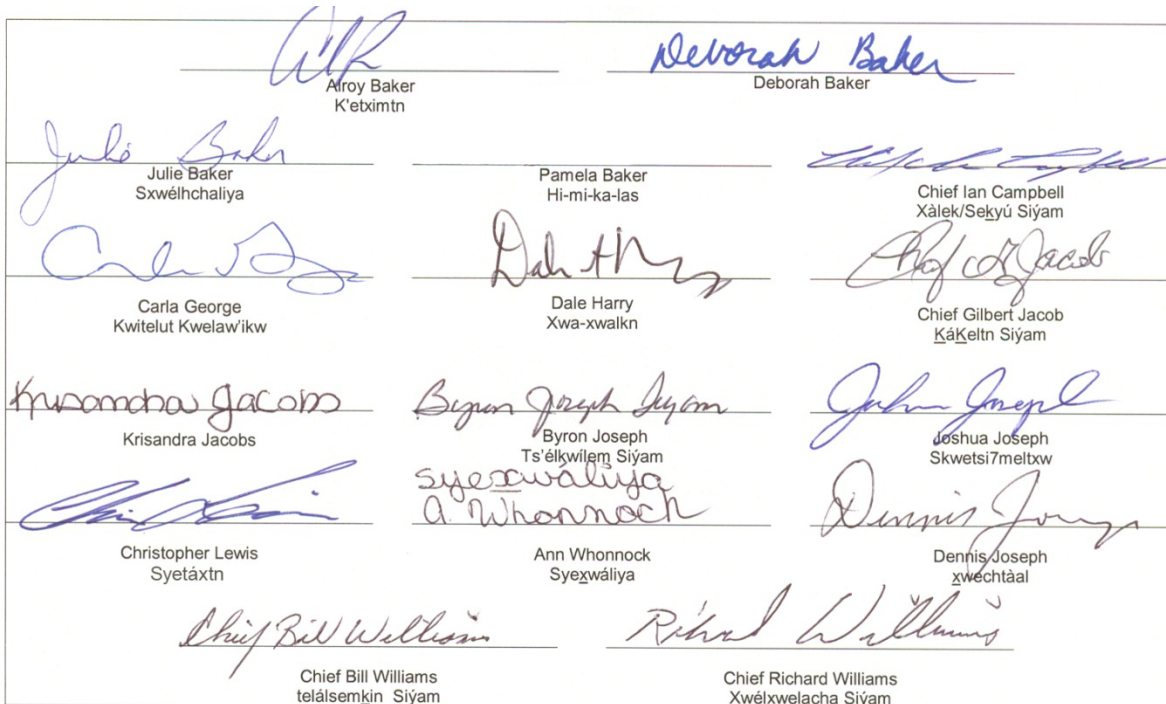 Deborah Baker
Alroy Baker
K'etximtn
Deborah Baker
Julie Baker
Julie Baker
Sxwélhchaliya
Pamela Baker
Hi-mi-ka-las
Chief Ian Campbell
Xàlek/Se<u>k</u>yú Siy̓am
Carla George
Kwitelut Kwelaw'ikw
Dale Harry
Xwa-xwalkn
Chief Gilbert Jacob
<u>K</u>á<u>K</u>eltn Siy̓am
Krisandra Jacobs
Krisandra Jacobs
Byron Joseph Siyam
Byron Joseph
Ts'élkwílem Siy̓am
Joshua Joseph
Skwetsi7meltxw
Christopher Lewis
Syetáxtn
Sye<u>x</u>wáliya
A. Whonnock
Ann Whonnock
Sye<u>x</u>wáliya
Dennis Joseph
<u>x</u>wechtàal
Chief Bill Williams
Chief Bill Williams
telálsem<u>k</u>in Siy̓am
Richard Williams
Chief Richard Williams
Xwélxwelacha Siy̓am